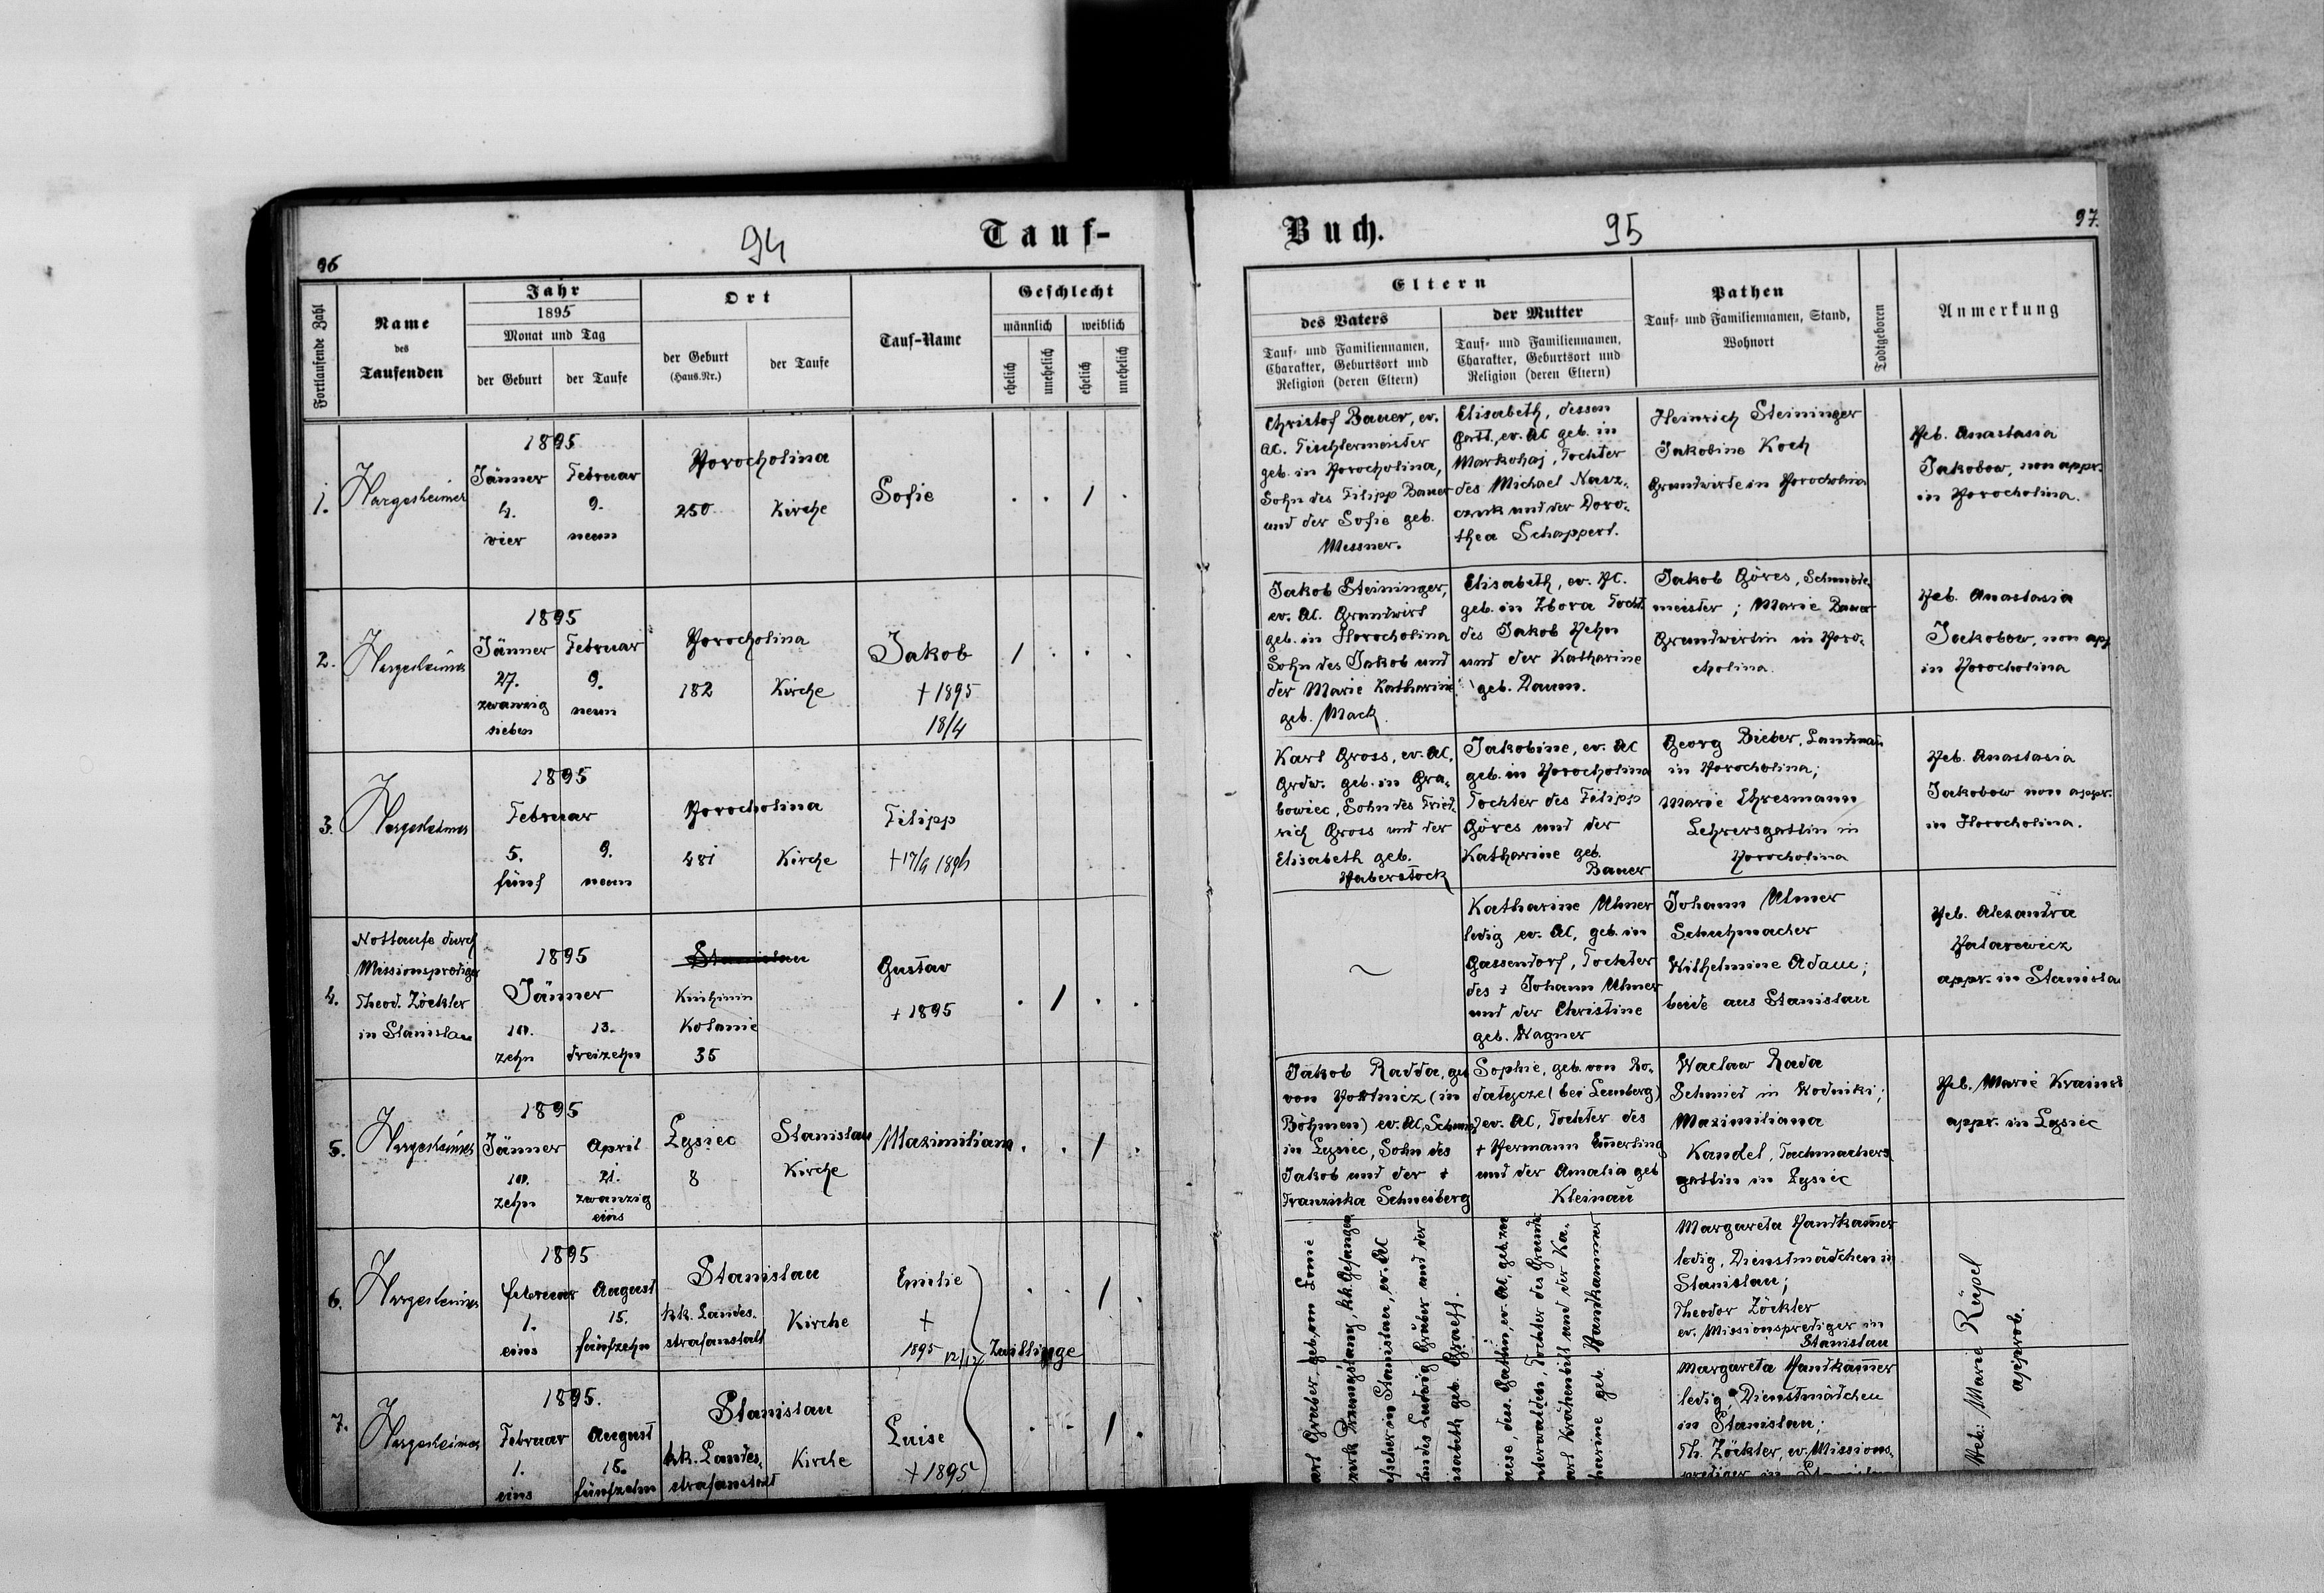 96
94
Tauf-
Fortlaufende Zahl
Name
des
Taufenden
Jahr
1895
Monat und Tag
der Geburt
der Taufe
Ort
der Geburt
(Haus.Nr.)
der Taufe
Tauf-Name
Geschlecht
männlich
weiblich
ehelich
unehelich
ehelich
unehelich
1.
Hargesheimer
1895
Jänner
4.
vier
Februar
9.
neun
Horocholina
250
Kirche
Sofie
. . / .
2.
Hargesheimer
1895
Jänner
27.
zwanzig
sieben
Februar
9.
neun
Horocholina
182
Kirche
Jakob
+ 1895
18/4
/ . . .
3.
Hargesheimer
1895
Februar
5.
fünf
9.
neun
Horocholina
481
Kirche
Filipp
4.
Nottaufe durch
Missionsprediger
Theod. Zöckler
in Stanislau
1895
Jänner
10.
zehn
13.
dreizehn
Stanislau
Knihinin
Kolonie
35
Gustav
+ 1895
. / . .
5.
Hargesheimer
1895
Jänner
10.
zehn
April
21.
zwanzig
eins
Lysiec
8
Stanislau
Kirche
Maximiliana
. . / .
6.
Hargesheimer
1895
Februar
1.
eins
August
15.
fünfzehn
Stanislau
kk. Landes-
strafanstalt
Kirche
Emilie
+
1895 12/12
Zwillinge
. . / .
7.
Hargesheimer
1895.
Februar
1.
eins
August
15.
fünfzehn
Stanislau
kk. Landes-
strafanstalt
Kirche
Luise
+ 1895
. . / .
Buch.
95
97.
Eltern
des Vaters
Tauf- und Familiennamen,
Charakter, Geburtsort und
Religion (deren Eltern)
der Mutter
Tauf- und Familiennamen,
Charakter, Geburtsort und
Religion (deren Eltern)
Pathen
Tauf- und Familiennamen, Stand,
Wohnort
Todtgeboren
Anmerkung
Christof Bauer, ev.
AC. Tischlermeister
geb. in Horocholina,
Sohn des Filipp Bauer
und der Sofie geb.
Messner.
Elisabeth, dessen
Gatt., ev. AC geb. in
Markohaj, Tochter
des Michael Nasz-
czuk und der Doro-
thea Schappert.
Heinrich Steininger
Jakobine Koch
Grundwirte in Horocholina
Heb. Anastasia
Jakobow, non appr.
in Horocholina.
Jakob Steininger,
ev. AC. Grundwirt
geb. in Horocholina
Sohn des Jakob und
der Marie Katharine
geb. Mack.
Elisabeth, ev. AC.
geb. in Zbora Tocht.
des Jakob Hehn
und der Katharine
geb. Daum.
Jakob Göres, Schmiede-
meister; Marie Bauer
Grundwirtin in Horo-
cholina.
Heb. Anastasia
Jackobow, non app
in Horocholina
Karl Gross, ev. AC.
Grdw. geb. in Gra-
bowiec, Sohn des Fried-
rich Gross und der
Elisabeth geb.
Haberstock
Jakobine, ev. AC
geb. in Horocholina
Tochter des Filipp
Göres und der
Katharine geb.
Bauer
Georg Bieber, Landmann
in Horocholina;
Marie Ehresmann
Lehrersgattin in
Horocholina
Heb. Anastasia
Jakobow non appr.
in Horocholina.
Katharine Ulmer
ledig ev. AC, geb. in
Gassendorf, Tochter
des + Johann Ulmer
und der Christine
geb. Wagner
Johann Ulmer
Schuhmacher
Wilhelmine Adam;
beide aus Stanislau
Heb. Alexandra
Halarewicz
appr. in Stanislau
Jakob Radda, geb
in
Böhmen) ev. AC, Schmied
in Lysiec, Sohn des
Jakob und der +
Franziska Schneiberg
Sophie, geb. von Ro-
datycze (bei Lemberg)
ev. AC, Tochter des
+ Hermann Emerling
und der Amalia geb
Kleinau
Waclaw Rada
Schmied in Wodniki;
Maximiliana
Kandel, Tuchmachers
gattin in Lysiec
Heb. Marie Krainsk
appr. in Lysiec
arl Gruber, geb. von
kk. Gefangen
efseher in Stanislau, ev. AC
des Ludwig Gruber und der
isabeth geb. Graeff.
uise, dess. Gattin, ev. AC, geb. zu
nterwalden, Tochter des Grundw
arl Krähenbill und der Ka-
tharine geb. Handkammer
Margareta Handkamer
ledig, Dienstmädchen in
Stanislau;
Theodor Zöckler
ev. Missionsprediger in
Stanislau
Margareta Handkamer
ledig, Dienstmädchen
in Stanislau;
Th. Zöckler, ev. Missions-
prediger in Stanislau
Heb: Marie Rüpel
approb.